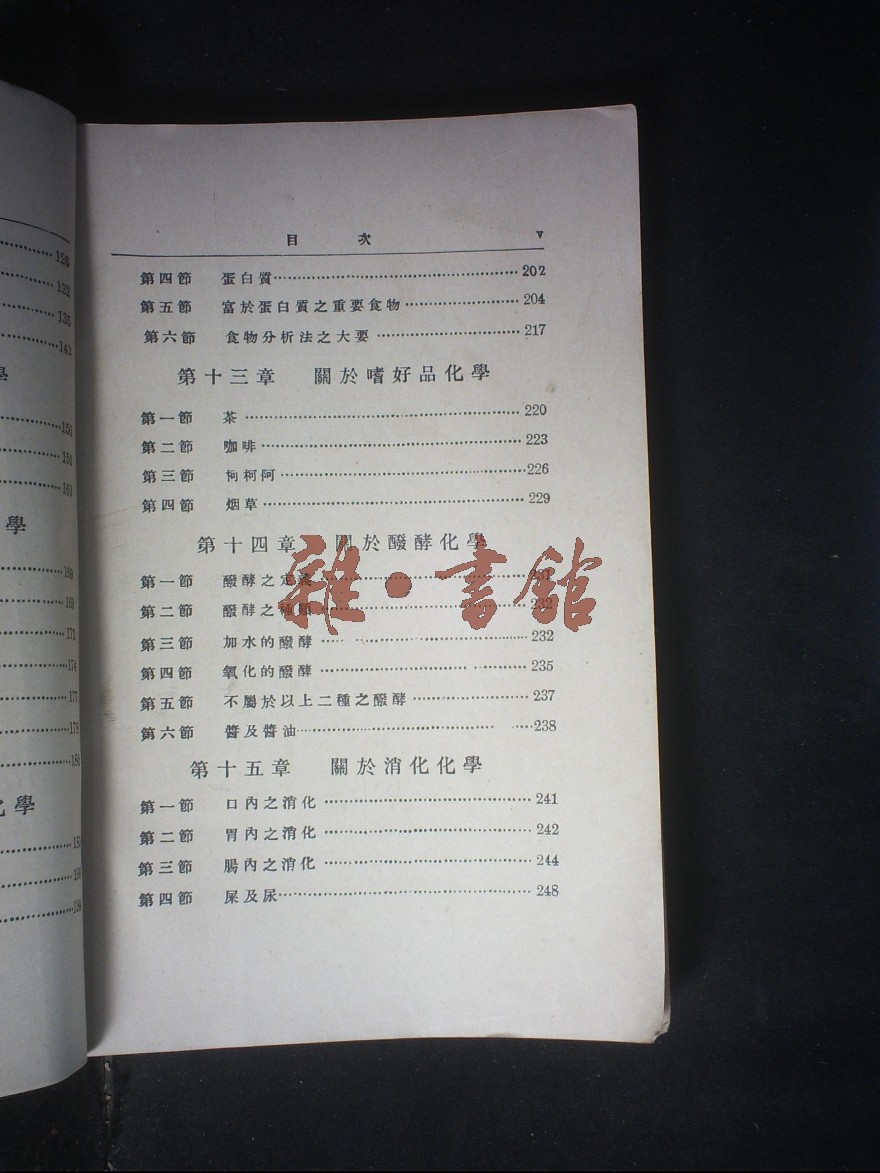 126
132
135
142
學
150
156
161
學
169
169
173
174
177
178
180
化學
目次 v
第四節 蛋白質 202
第五節 富於蛋白質之重要食物 204
第六節 食物分析法之大要 217
第十三章 關於嗜好品化學
第一節 茶 220
第二節 咖啡 223
第三節 柯柯阿 226
第四節 烟草 229
第十四章 關於醱酵化學
第一節 醱酵之定義 231
第二節 醱酵之種類 232
第三節 加水的醱酵 232
第四節 氧化的醱酵 235
第五節 不屬於以上二種之醱酵 237
第六節 醬及醬油 238
第十五章 關於消化化學
第一節 口內之消化 241
第二節 胃內之消化 242
第三節 腸內之消化 244
第四節 屎及尿 248
雜·書館